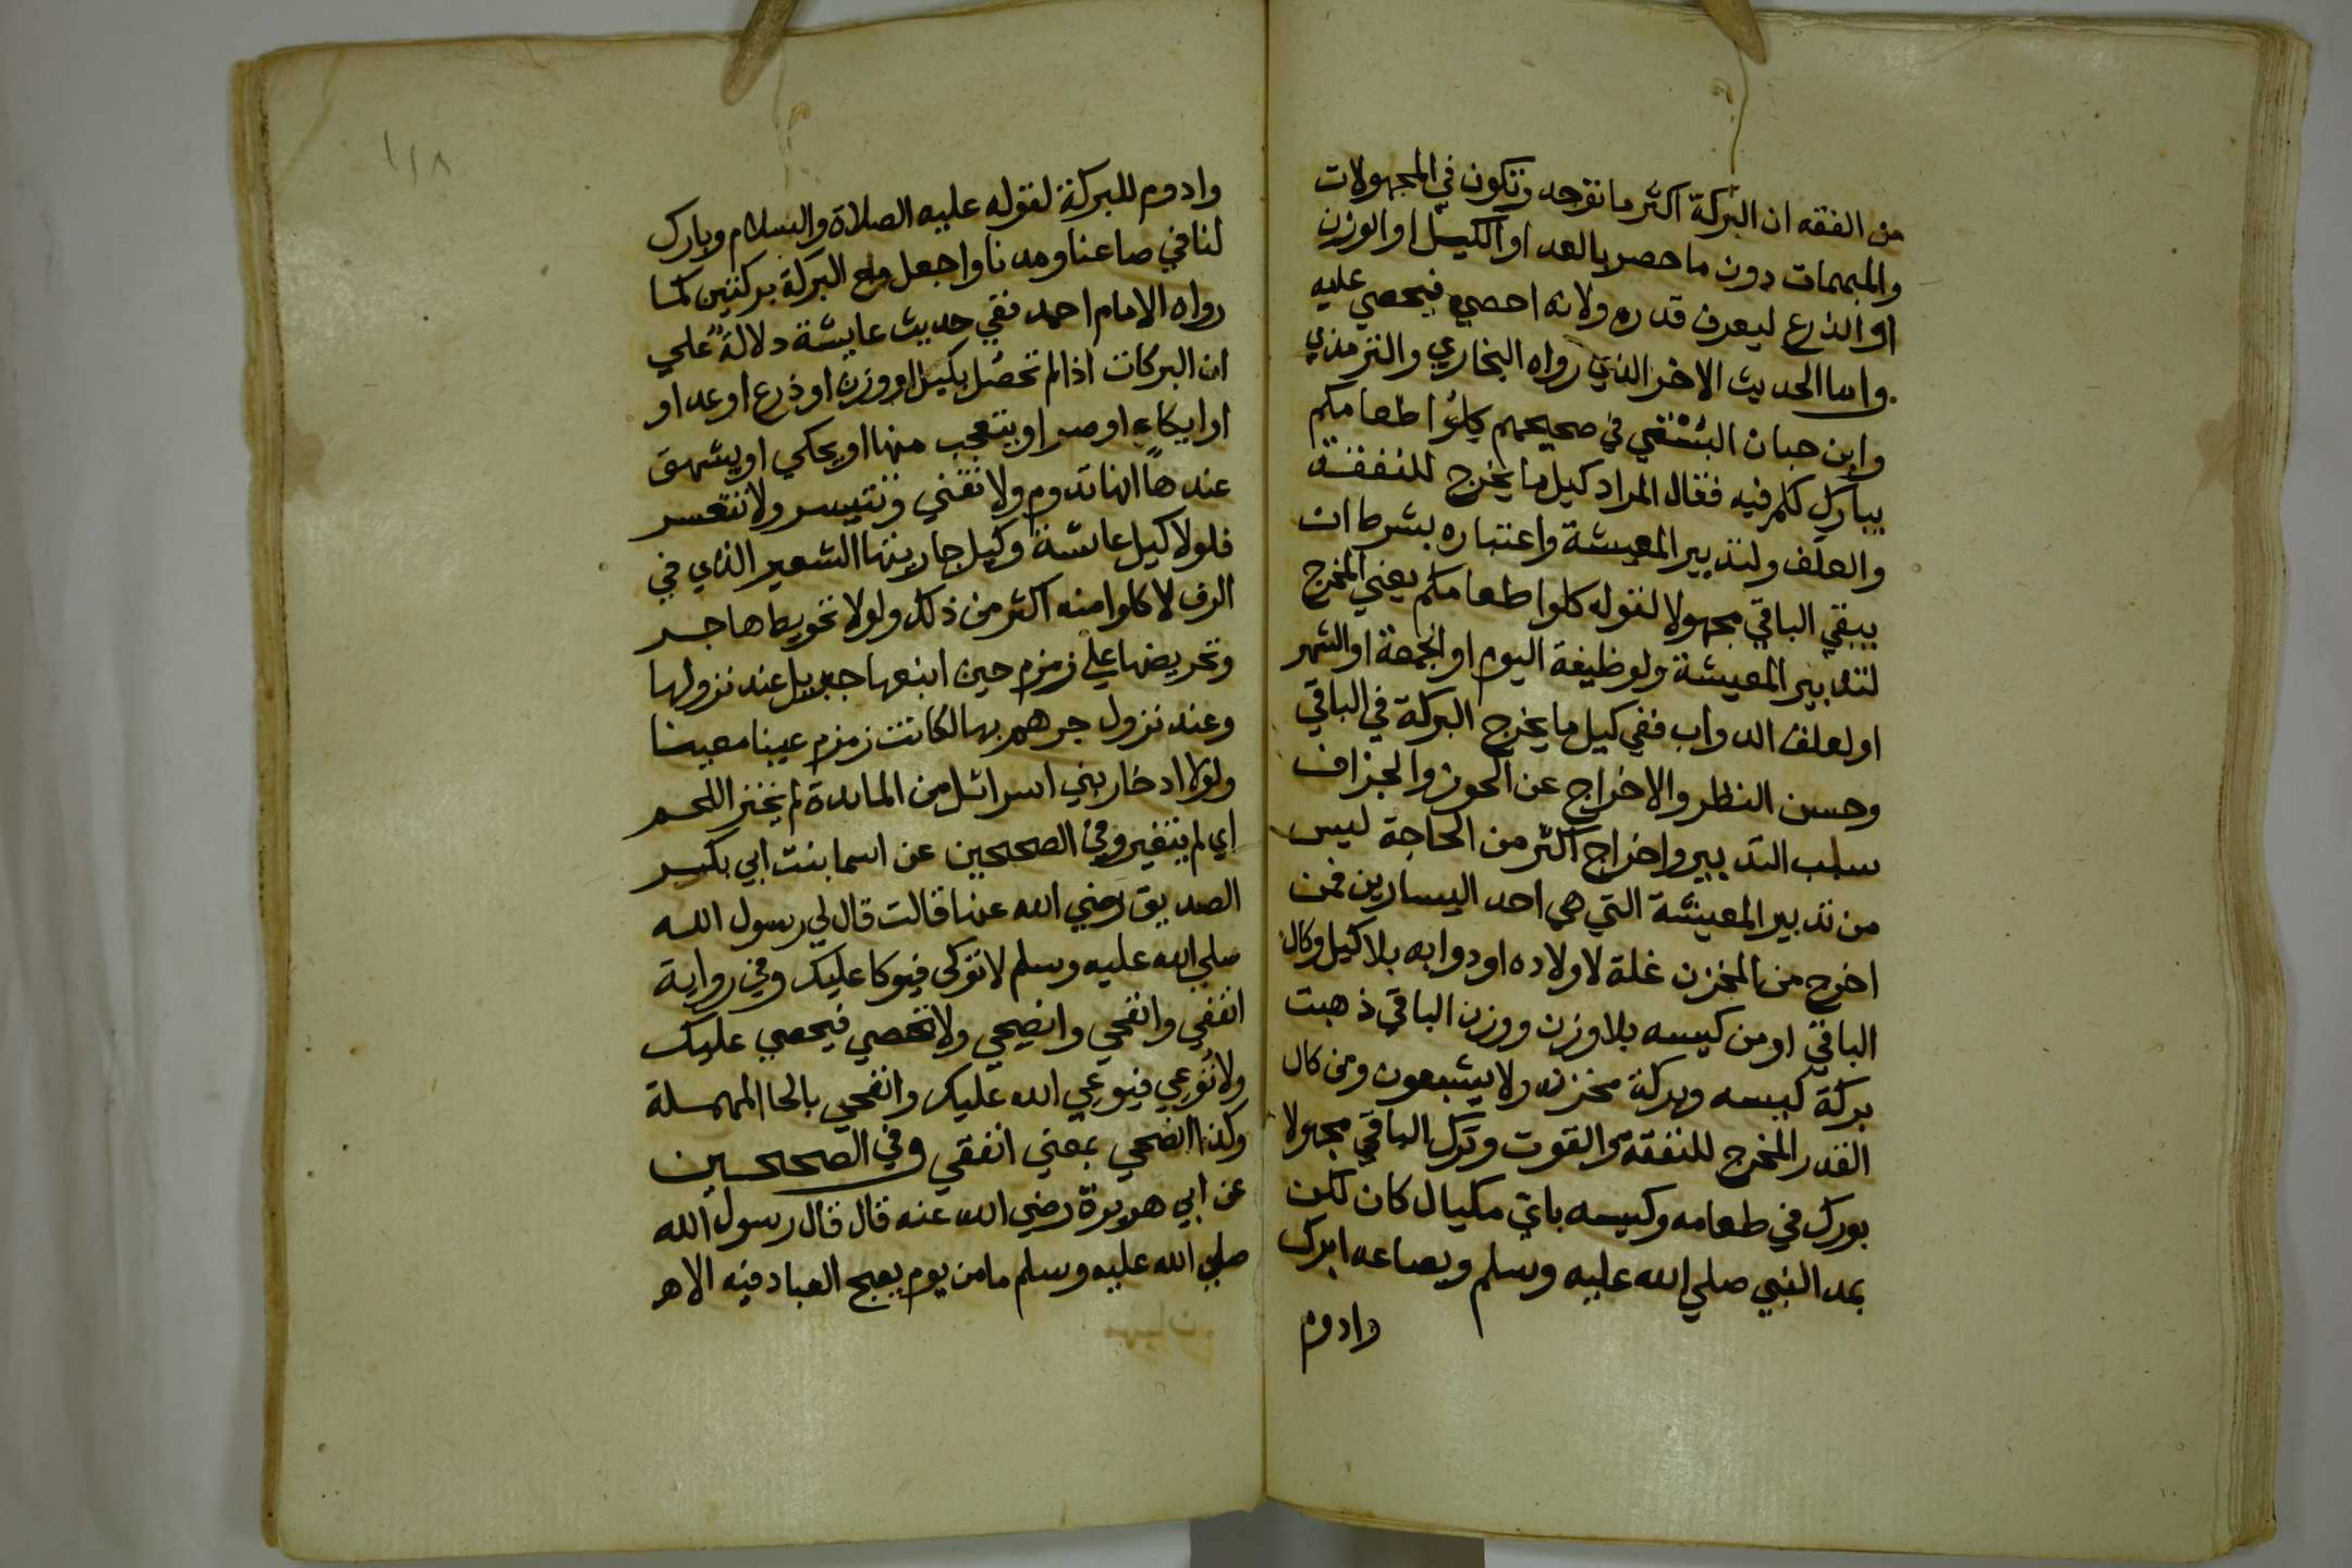 من الفقه ان البركة اكثر ما توجد وتكون في المجهولات
والمبهمات دون ما حصر بالعد او الكيل او الوزن
او الذرع ليعرف قدره ولانه احصي فيحصي عليه
واما الحديث الاخر الذي رواه البخاري والترمذي
وابن حبان البستي في صحيحهم كيلوا طعامكم
يبارك لكم فيه فقال المراد كيل ما يخرج للنفقة
والعلف ولتدبير المعيشة واعتباره بشرط ان
يبقي الباقي مجهولا لقوله كلوا طعامكم يعني المخرج
لتدبير المعيشة ولوظيفة اليوم او الجمعة او الشهر
او لعلف الدواب ففي كيل ما يخرج البركة في الباقي
وحسن النظر والاخراج عن الحوز والجزاف
سلب التدبير واخراج اكثر من الحاجة ليس
من تدبير المعيشة التي هي احد اليسارين فمن
اخرج من المخزن غلة لاولاده او دوابه بلا كيل وكال
الباقي او من كيسه بلا وزن ووزن الباقي ذهبت
بركة كيسه وبركة مخزنه ولا يشبعون ومن كال
القدر المخرج للنفقة والقوت وترك الباقي مجهولا
بورك في طعامه وكيسه باي مكيال كان لكن
بمد النبي صلي الله عليه وسلم وبصاعه ابرك
وادوم
١١٨
وادوم للبركة لقوله عليه الصلاة والسلام وبارك
لنا في صاعنا ومدنا واجعل مع البركة بركتين كما
رواه الامام احمد ففي حديث عايشة دلالة علي
ان البركات اذا لم تحصل بكيل او وزن او ذرع او عد او
او ايكاء او صر او يتعجب منها او يحكي او يشهق
عندها انها تدوم ولا تفني وتتيسر ولا تتعسر
فلولا كيل عائشة وكيل جاريتها الشعير الذي في
الرف لاكلوا منه اكثر من ذلك ولولا تحويط هاجر
وتحريضها علي زمزم حين انبعها جبريل عند نزولها
وعند نزول جرهم بها لكانت زمزم عينا معينا
ولولا ادخار بني اسرائل من المايدة لم يخنز اللحم
اي لم يتغير وفي الصحيحين عن اسما بنت ابي بكر
الصديق رضي الله عنها قالت قال لي رسول الله
صلي الله عليه وسلم لا توكي فيوكا عليك وفي رواية
انفقي وانفحي وانضحي ولا تحصي فيحصي عليك
ولا توعي فيوعي الله عليك وانفحي بالحا المهملة
وكذا انضحي بمعني انفقي وفي الصحيحين
عن ابي هريرة رضي الله عنه قال قال رسول الله
صلي الله عليه وسلم ما من يوم يصبح العباد فيه الا هـ